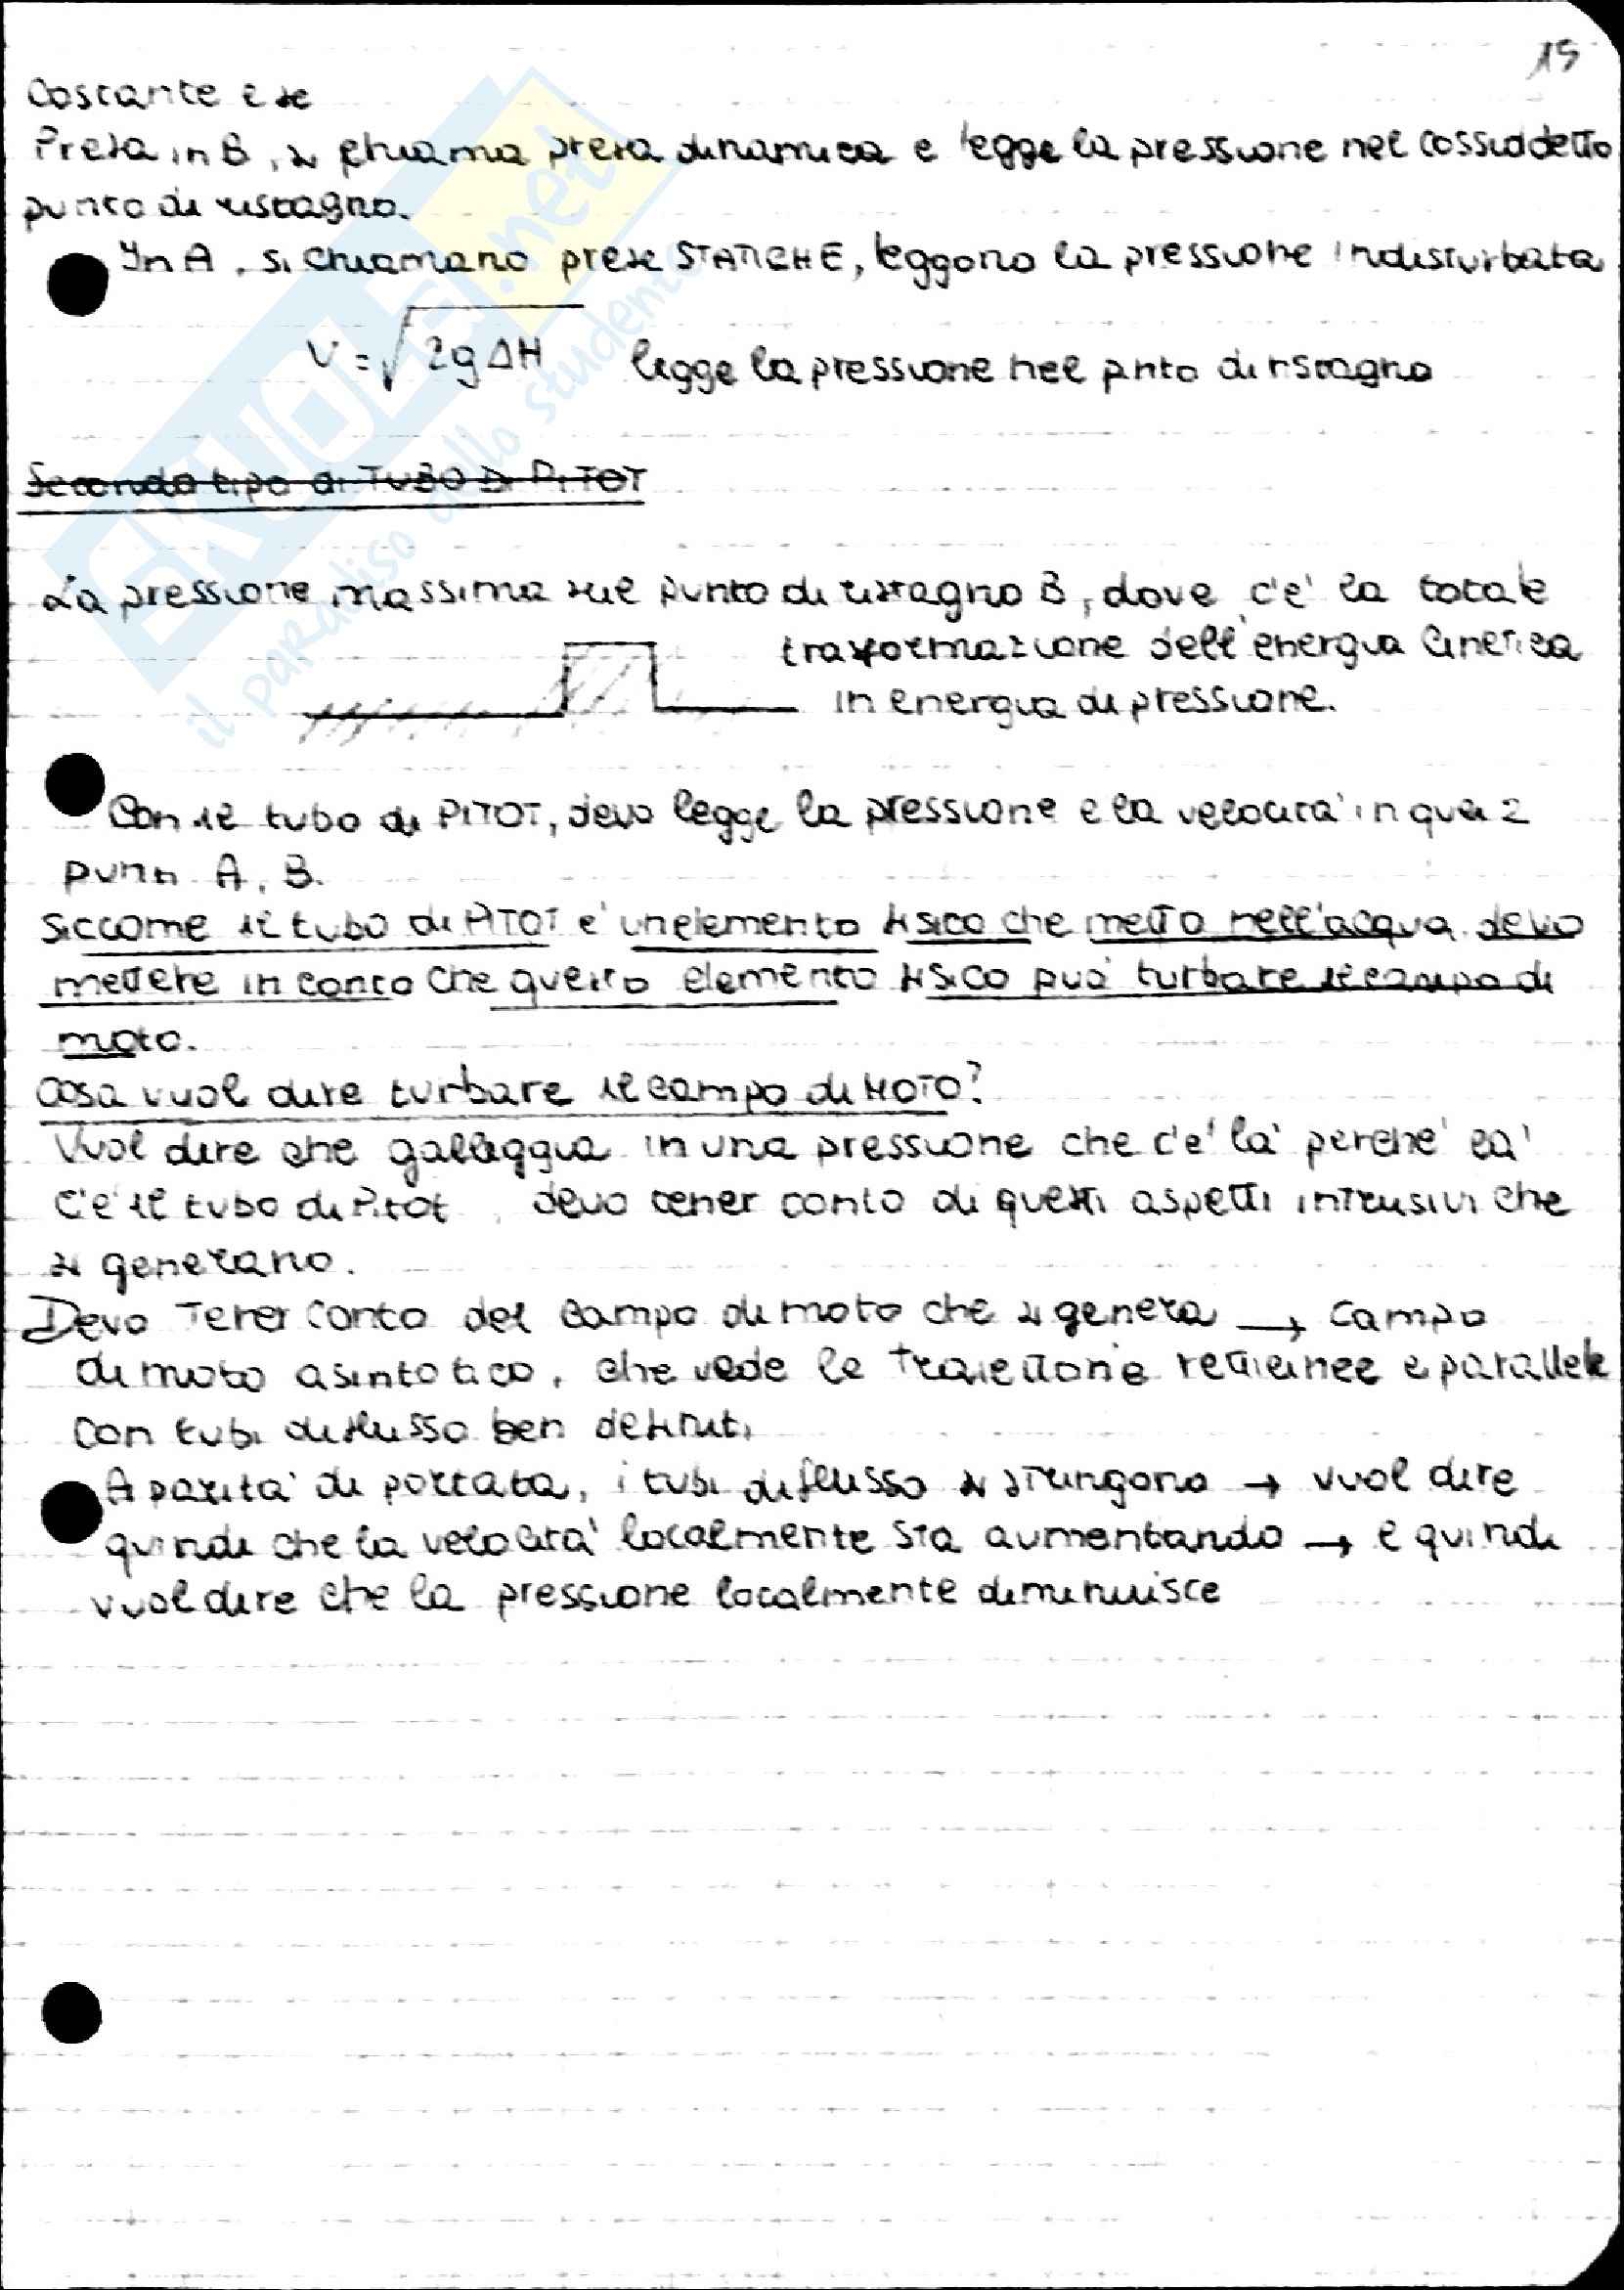 15
Costante e se
Presa in B, si chiama presa dinamica e legge la pressione nel cossiddetto
punto di ristagno.
In A, si chiamano prese STATICHE, leggono la pressione indisturbata
V = √2gΔH legge la pressione nel pnto di ristagno
Secondo tipo di TUBO DI PITOT
La pressione massima sul punto di ristagno B, dove c'e' la totale
trasformazione dell'energia cinetica
in energia di pressione.
Con il tubo di PITOT, devo legge la pressione e la velocita' in quei 2
punti A, B.
Siccome il tubo di PITOT e' un elemento fisico che metto nell'acqua devo
mettere in conto che questo elemento fisico puo' turbare il campo di
moto.
Cosa vuol dire turbare il campo di MOTO?
Vuol dire che galleggia in una pressione che c'e' la' perche' la'
c'e' il tubo di Pitot, devo tener conto di questi aspetti intrusivi che
si generano.
Devo Tener conto del campo di moto che si genera → campo
di moto asintotico, che vede le Traiettorie rettilinee e parallele
con tubi di flusso ben definiti
A parita' di portata, i tubi di flusso si stringono → vuol dire
quindi che la velocita' localmente sta aumentando → e quindi
vuol dire che la pressione localmente diminuisce
SKUOLA.net
il paradiso dello studente